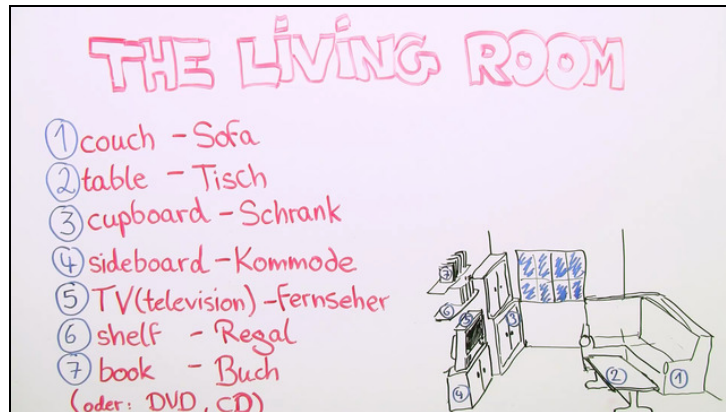 THE LIVING ROOM
① couch - Sofa
② table - Tisch
③ cupboard - Schrank
④ sideboard - Kommode
⑤ TV (television) - Fernseher
⑥ shelf - Regal
⑦ book - Buch
(oder: DVD, CD)
⑦
⑥
⑤
③
④
②
①